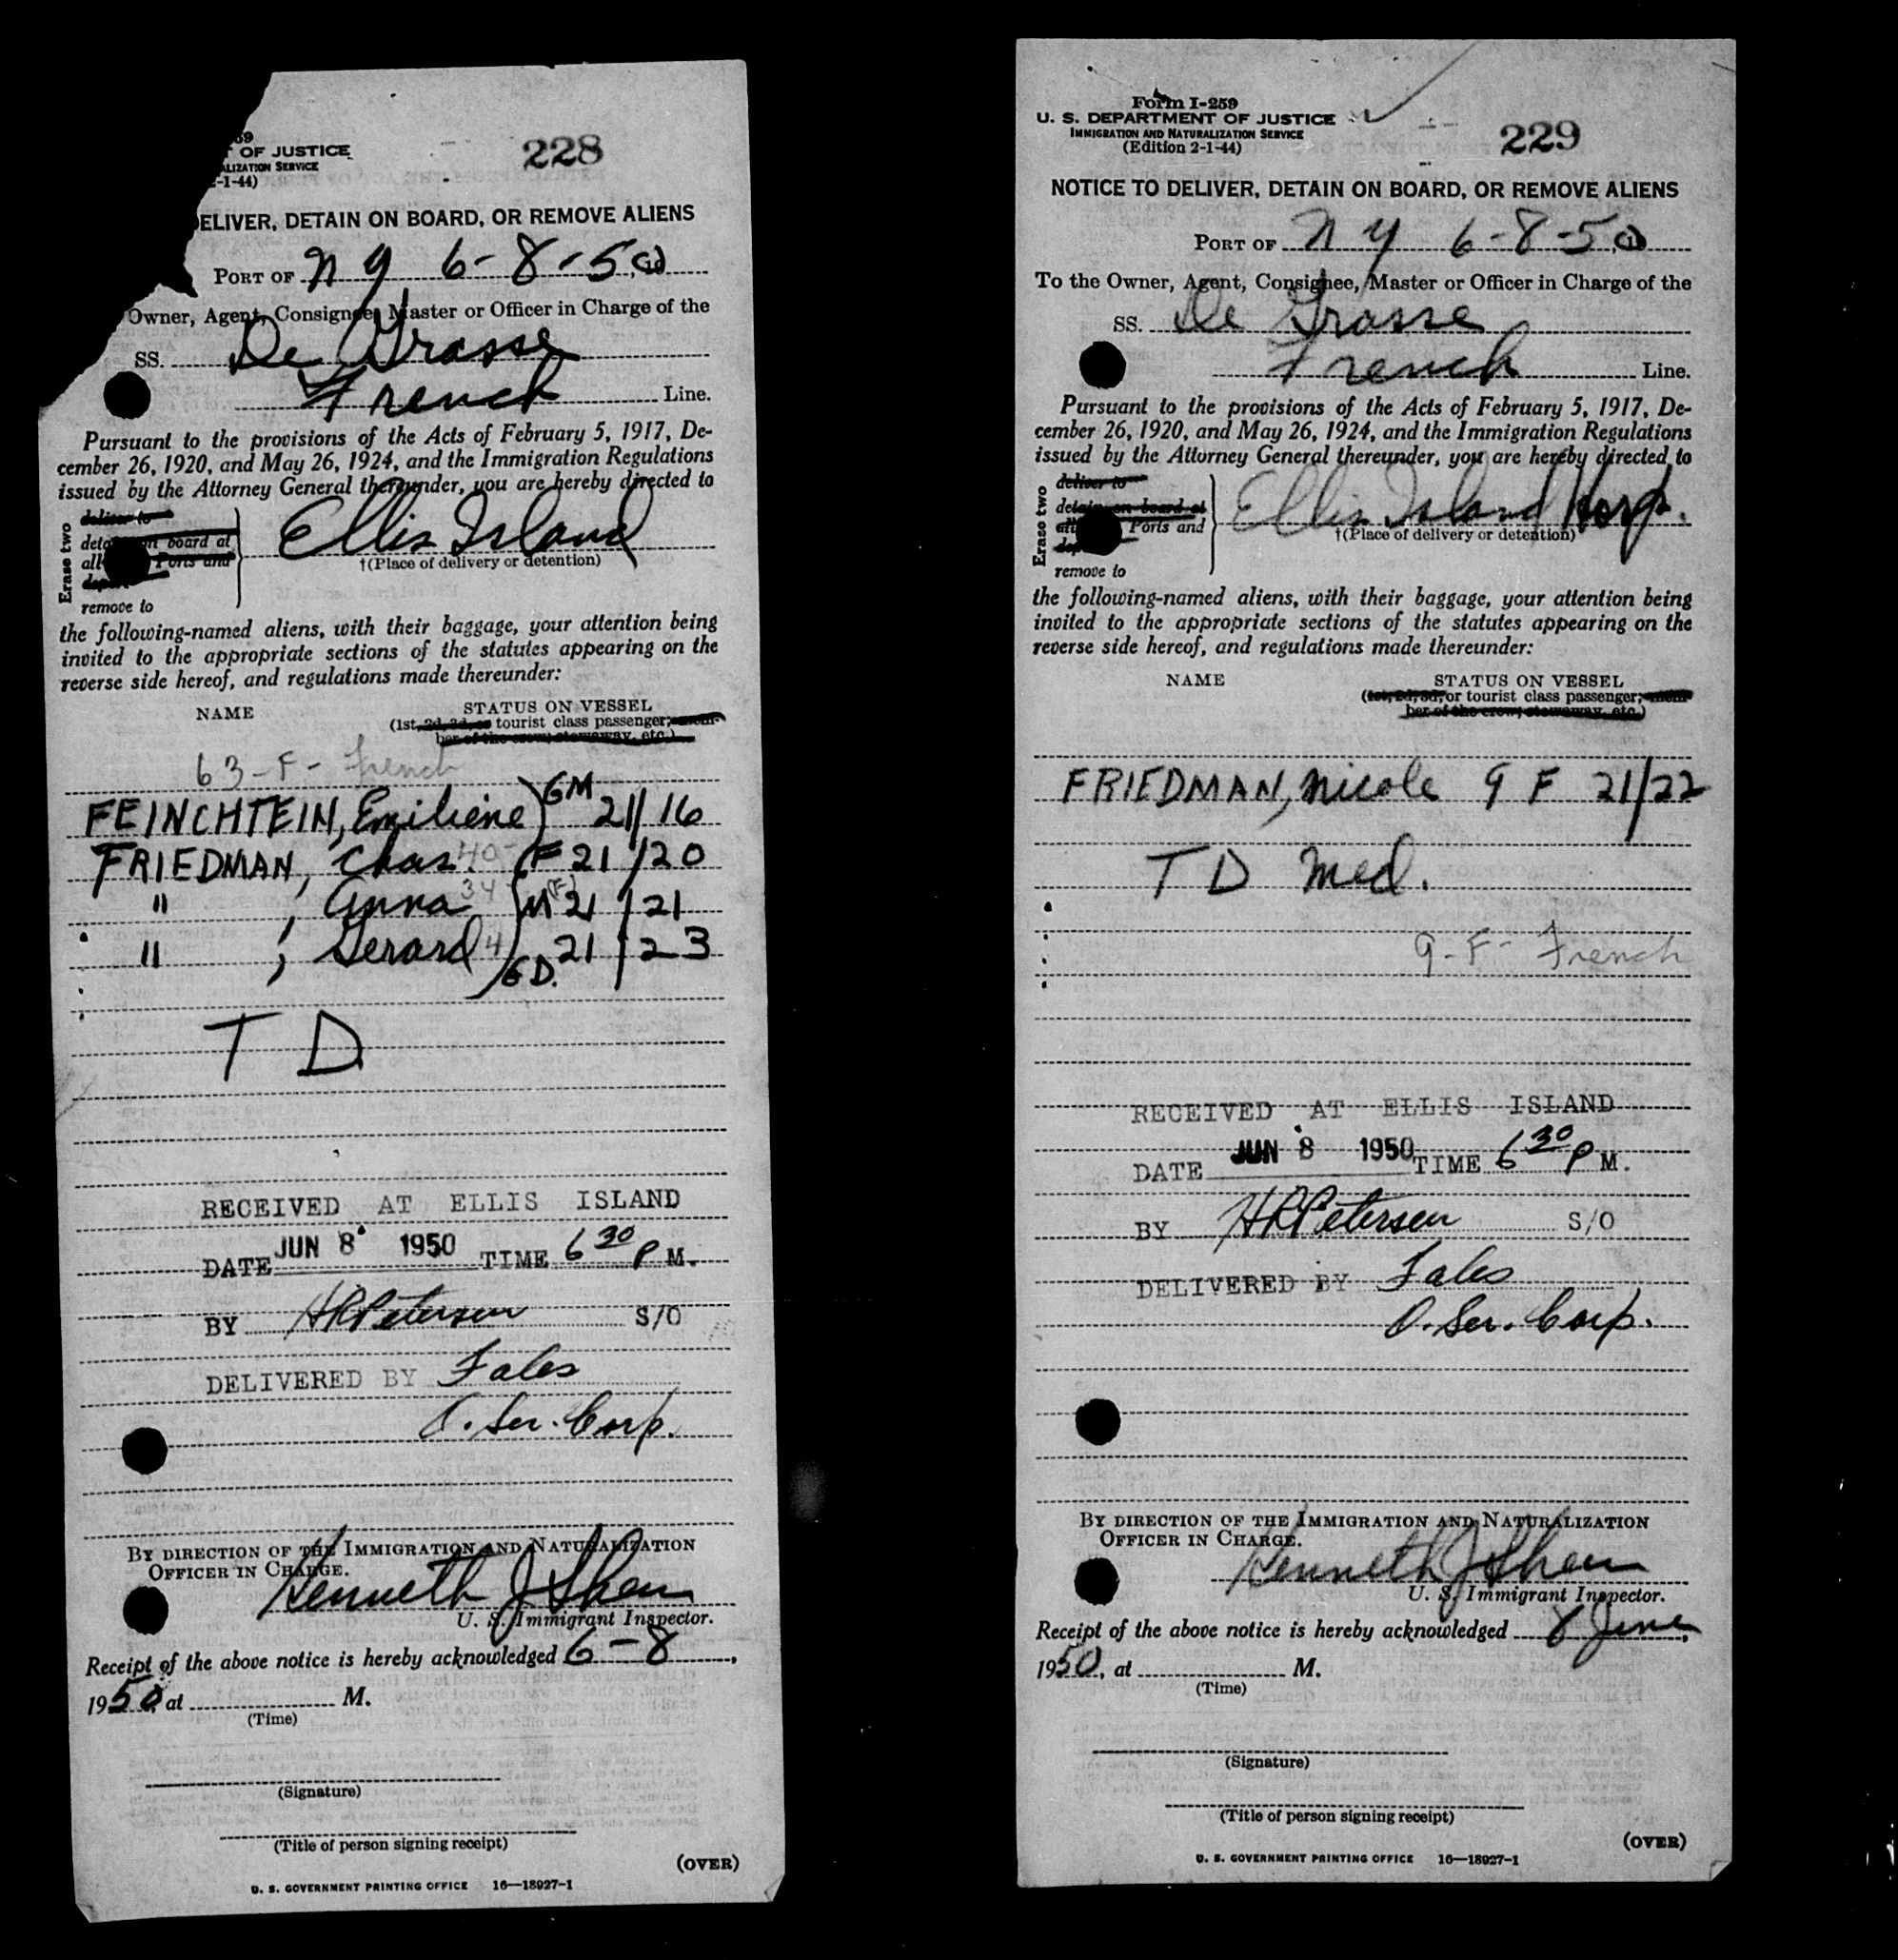 59
T OF JUSTICE
ALIZATION SERVICE
2-1-44)
228
DELIVER, DETAIN ON BOARD, OR REMOVE ALIENS
PORT OF N Y 6-8-50
Owner, Agent, Consignee, Master or Officer in Charge of the
SS. De Grasse
French Line.
Pursuant to the provisions of the Acts of February 5, 1917, De-
cember 26, 1920, and May 26, 1924, and the Immigration Regulations
issued by the Attorney General thereunder, you are hereby directed to
Erase two
deliver to
detain on board at
all Ports and
deport
remove to
Ellis Island
†(Place of delivery or detention)
the following-named aliens, with their baggage, your attention being
invited to the appropriate sections of the statutes appearing on the
reverse side hereof, and regulations made thereunder:
NAME STATUS ON VESSEL
(1st, 2d, 3d, or tourist class passenger; mem-
ber of the crew; stowaway, etc.)
63-F- French
FEINCHTEIN, Emiliene GM 21/16
FRIEDMAN, Chas. 40- F 21/20
" , Anna 34 M (F) 21/21
" , Gerard 4 21/23
GD.
T D
RECEIVED AT ELLIS ISLAND
DATE JUN 8 1950 TIME 6 30 P M.
BY HRPetersen S/O
DELIVERED BY Fales
O. Ser. Corp.
BY DIRECTION OF THE IMMIGRATION AND NATURALIZATION
OFFICER IN CHARGE.
Kenneth J Shea
U. S. Immigrant Inspector.
Receipt of the above notice is hereby acknowledged 6-8,
1950, at M.
(Time)
(Signature)
(Title of person signing receipt)
(OVER)
U. S. GOVERNMENT PRINTING OFFICE 16—18927-1
Form I-259
U. S. DEPARTMENT OF JUSTICE
IMMIGRATION AND NATURALIZATION SERVICE
(Edition 2-1-44)
229
NOTICE TO DELIVER, DETAIN ON BOARD, OR REMOVE ALIENS
PORT OF N Y 6-8-50
To the Owner, Agent, Consignee, Master or Officer in Charge of the
SS. De Grasse
French Line.
Pursuant to the provisions of the Acts of February 5, 1917, De-
cember 26, 1920, and May 26, 1924, and the Immigration Regulations
issued by the Attorney General thereunder, you are hereby directed to
Erase two
deliver to
detain on board at
all Ports and
deport
remove to
Ellis Island Hosp.
†(Place of delivery or detention)
the following-named aliens, with their baggage, your attention being
invited to the appropriate sections of the statutes appearing on the
reverse side hereof, and regulations made thereunder:
NAME STATUS ON VESSEL
(1st, 2d, 3d, or tourist class passenger; mem-
ber of the crew; stowaway, etc.)
FRIEDMAN, Nicole 9 F 21/22
T D Med.
9-F- French
RECEIVED AT ELLIS ISLAND
DATE JUN 8 1950 TIME 6 30 P M.
BY HRPetersen S/O
DELIVERED BY Fales
O. Ser. Corp.
BY DIRECTION OF THE IMMIGRATION AND NATURALIZATION
OFFICER IN CHARGE.
Kenneth J Shea
U. S. Immigrant Inspector.
Receipt of the above notice is hereby acknowledged 8 June,
1950, at M.
(Time)
(Signature)
(Title of person signing receipt)
(OVER)
U. S. GOVERNMENT PRINTING OFFICE 16—18927-1